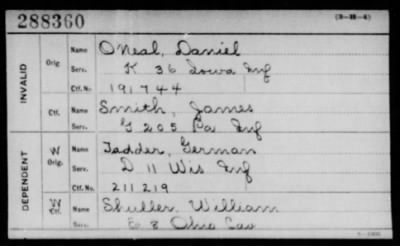 288360 (3-111-4)
INVALID Orig. Name O'Neal, Daniel
Serv. K 36 Iowa Inf
Ctf. No. 191744
Ctf. Name Smith, James
Serv. G 205 Pa Inf
DEPENDENT W Orig. Name Tadder, German
Serv. D 11 Wis Inf
Ctf. No. 211219
W Ctf. Name Shuller, William
Serv. E 8 Ohio Cav